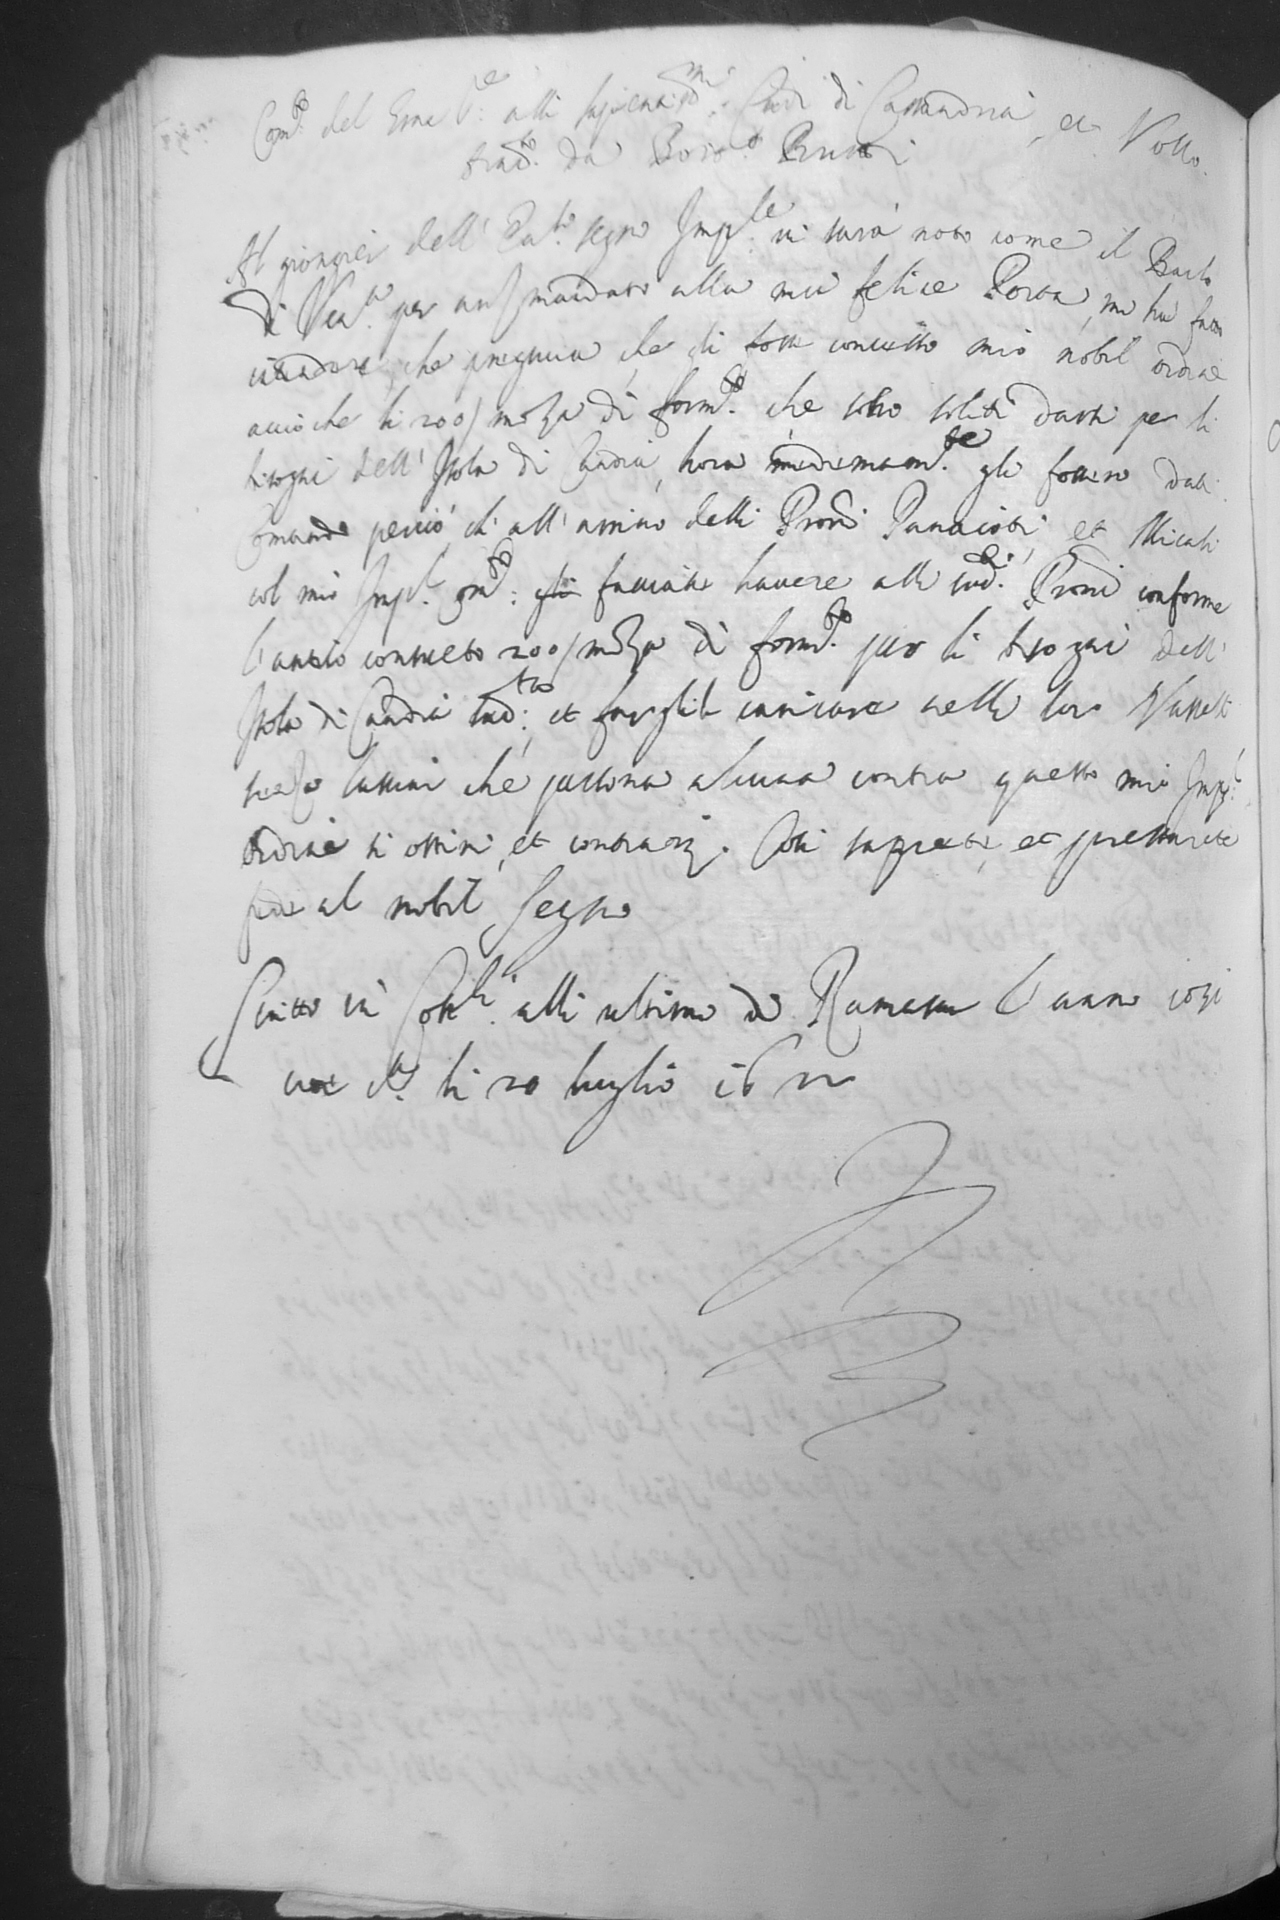 Com.to del Gran S.e alli sapientis.mi Cadi di Cassandria, et Vollo.
trad.to da Bor.o Brutti
Al gionger dell' Ecc.so segno Imp.le vi sarà noto come il Bailo
di Ven.a per arz mandato alla mia felice Porta, mi hà fatto
intendere, che pregava, che li fosse concesso mio nobil ordine
acciò che li 200/ moza di form.to che sono soliti darsi per li
bisogni dell' Isola di Candia, hora medemam.te gli fossero dati.
Comando perciò, ch' all' arrivo delli Proti Panaioti, et Micali
col mio Imp.l com.to facciate havere alli sud.i Proti conforme
l' antico consueto 200/ moza di form.to per li bisogni dell'
Isola di Candia sud.ta, et fargli li caricare nelli lor Vasselli
senza lassar che persona alcuna contra questo mio Imp.l
ordine si ostini, et contrarij. Così saprete, et prestarete
fede al nobil segno
Scritto in Cos.li alli ultimi di Ramasan l' anno 1031
cioè c.a li 20 luglio 1622